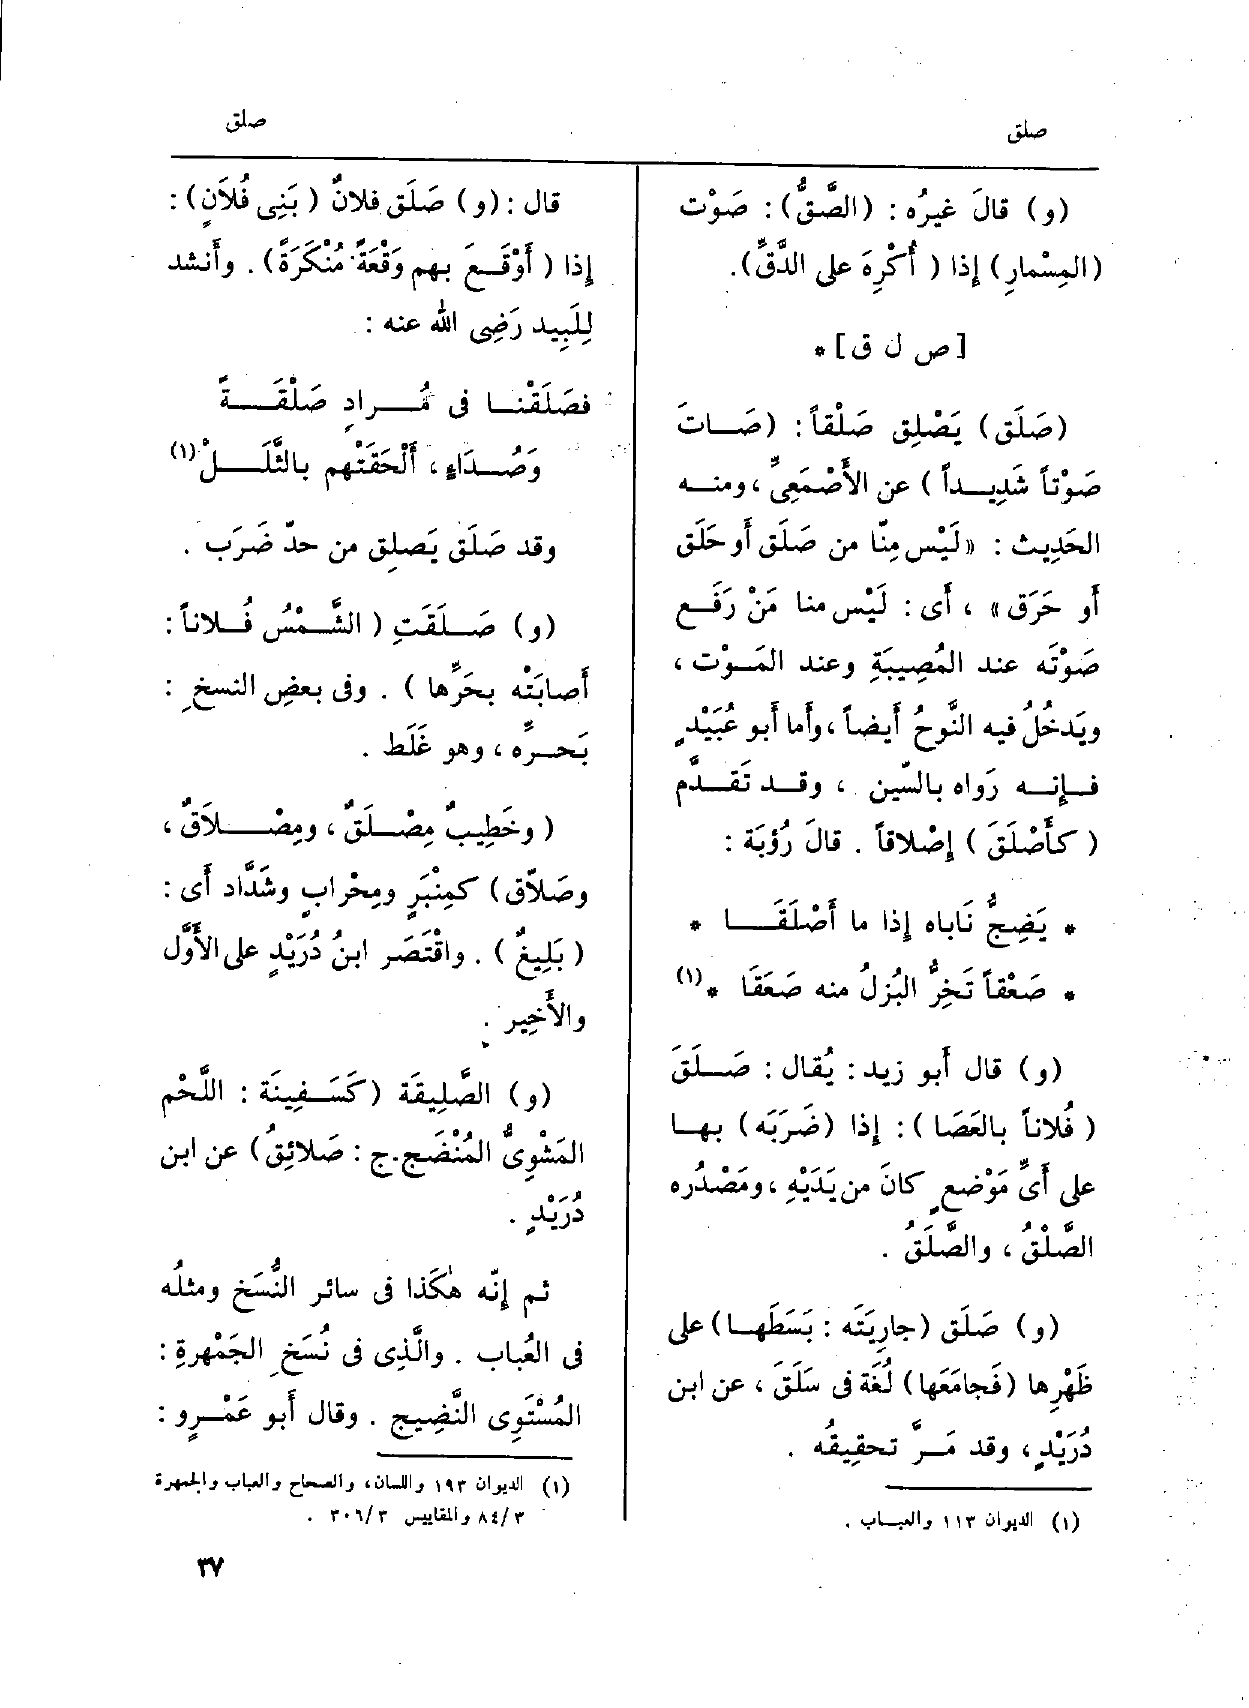 صلق
صلق
(و) قالَ غيرُه : (الصَّقُّ) : صَوْت
(المِسْمارِ) إذا ( أُكْرِهَ على الدَّقِّ).
[ ص ل ق ] *
(صَلَق) يَصْلِق صَلْقاً : (صَــاتَ
صَوْتاً شَدِيــداً ) عن الأَصْمَعِىِّ ، ومنــه
الحَدِيث : « لَيْس مِنّا من صَلَق أو حَلَق
أو خَرَق » ، أى : لَيْس منا مَنْ رَفَــع
صَوْتَه عند المُصِيبَةِ وعند المَــوْت ،
ويَدخُلُ فيه النَّوحُ أيضاً ، وأما أبو عُبَيْدٍ
فــإنــه رَواه بالسِّين ، وقــد تَقَــدَّم
( كأَصْلَقَ ) إصْلاقاً . قالَ رُؤبَة :
* يَضِجُّ نَاباه إذا ما أَصْلَقَــــا *
* صَعْقاً تَخِرُّ البُزلُ منه صَعَقَا * (١)
(و) قال أَبو زيد : يُقال : صَــلَقَ
( فُلاناً بالعَصَا ) : إذا (ضَرَبَه) بهــا
على أَىِّ مَوْضعٍ كانَ من يَدَيْهِ ، ومَصْدُره
الصَّلْقُ ، والصَّلَقُ .
(و) صَلَق (جارِيَتَه : بَسَطَهــا) على
ظَهْرِها (فَجامَعَها) لُغَة فى سَلَقَ ، عن ابن
دُرَيْدٍ ، وقد مَــرَّ تحقيقُه .
(١) الديوان ١١٣ والعبــاب .
قال : (و) صَلَق فلانٌ ( بَنِى فُلاَنٍ) :
إذا ( أَوْقَــعَ بهم وَقْعَةً مُنْكَرَةً) . وأَنشد
لِلَبِيد رَضِى الله عنه :
فصَلَقْنــا فى مُــرادٍ صَلْقَــةً
وَصُــدَاءٍ ، أَلْحَقَتْهم بالثَّلَــلْ (١)
وقد صَلَق يَصلِق من حدّ ضَرَب .
(و) صَــلَقَتِ ( الشَّــمْسُ فُــلاناً :
أَصابَتْه بحَرِّها ) . وفى بعضِ النسخِ :
بَحــرِّه ، وهو غَلَط .
( وخَطِيبٌ مِصْــلَقٌ ، ومِصْــلاَقٌ ،
وصَلاّق) كمِنْبَرٍ ومِحْرابٍ وشَدَّاد أى :
( بَلِيغٌ ) . واقْتَصَر ابنُ دُرَيْدٍ على الأَوَّل
والأَخِير .
(و) الصَّلِيقَة (كَسَــفِينَة : اللَّحْم
المَشْوِىُّ المُنْضَج.ج : صَلائِقُ) عن ابن
دُرَيْدٍ .
ثم إنّه هٰكَذا فى سائر النُّسَخ ومثلُه
فى العُباب . والَّذِى فى نُسَخِ الجَمْهرةِ :
المُسْتَوِى النَّضِيج . وقال أَبو عَمْــرٍو :
(١) الديوان ١٩٣ واللسان، والصحاح والعباب والجمهرة
٨٤/٣ والمقاييس ٣٠٦/٣ .
٣٧